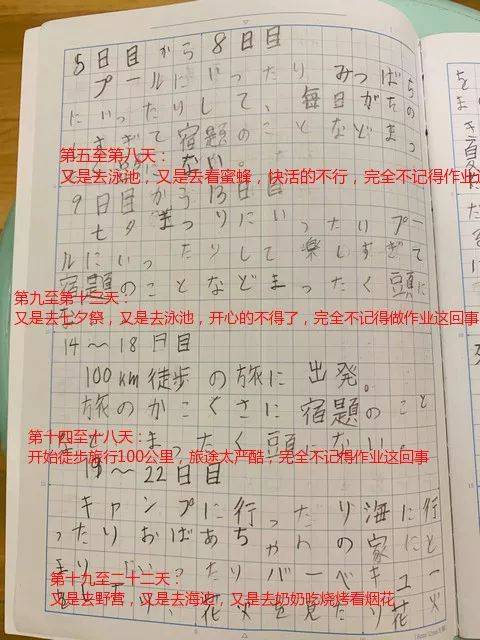 5日目から8日目
プールにいったり みつばち
にいったりして、毎日がたのし
すぎて宿題のことなどまっ
第五至第八天：
又是去泳池，又是去看蜜蜂，快活的不行，完全不记得作业
9日目から13日目
七夕まつりにいったりプー
ルにいったりして楽しすぎて
宿題のことなどまったく頭に
第九至第十三天：
又是去七夕祭，又是去泳池，开心的不得了，完全不记得做作业这回事
14〜18日目
100km徒歩の旅に出発。
旅のかこくさに宿題のこと
まったく頭にない。
第十四至十八天：
开始徒步旅行100公里，旅途太严酷，完全不记得作业这回事
19〜22日目
キャンプに行ったり海に行
ったりおばあちゃんの家に
いったりバーベキュー
花火を見たり
第十九至二十二天：
又是去野营，又是去海边，又是去奶奶吃烧烤看烟花